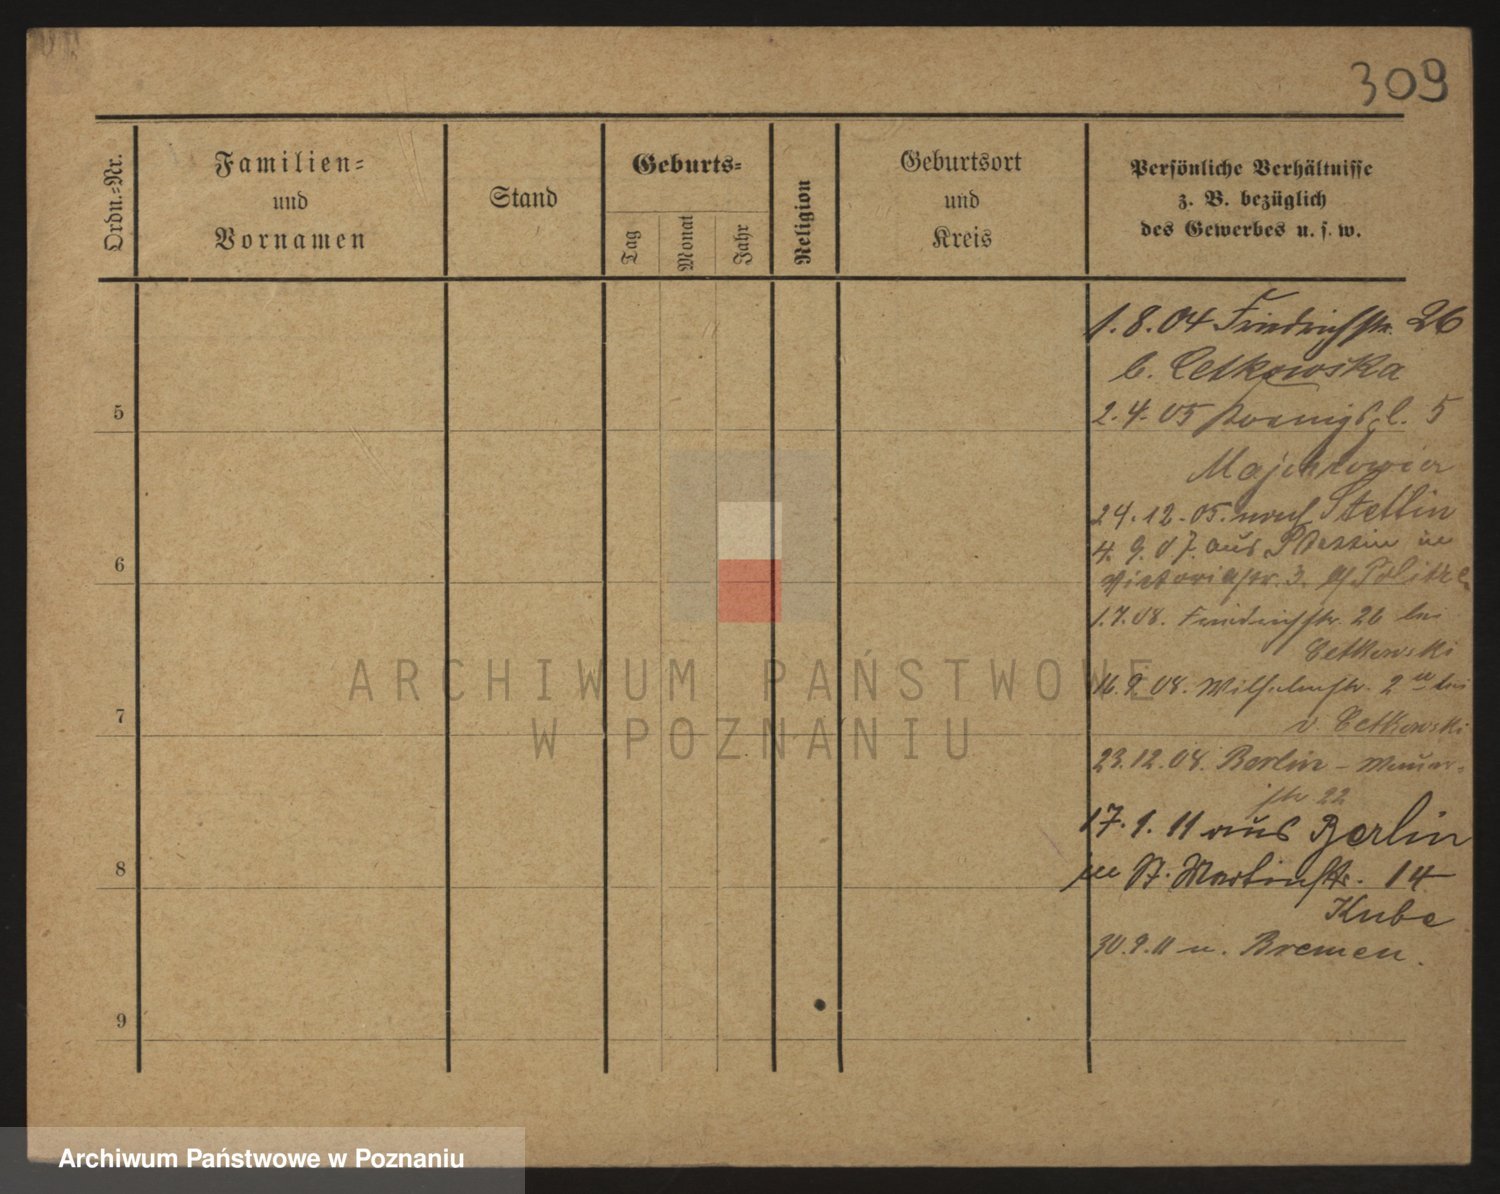 309
Ordn.=Nr.
Familien=
und
Vornamen
Stand
Geburts=
Tag
Monat
Jahr
Religion
Geburtsort
und
Kreis
Persönliche Verhältnisse
z. B. bezüglich
des Gewerbes u. s. w.
1.8.04 Friedrichstr. 26
b. Cetkowska
5
2.4.05 Koenigspl. 5
24.12.05. nach Stettin
6
4.9.07. aus Stettin in
Victoriastr. 3.
1.7.08. Friedrichstr. 26 bei
Cetkowski
16.9.08. Wilhelmstr. 2 bei
7
v. Cetkowski
23.12.08. Berlin -
str 22
17.1.11 aus Berlin
8
in St. Martinstr. 14
Kube
30.9.11 n. Bremen.
9
ARCHIWUM PAŃSTWOWE
W POZNANIU
Archiwum Państwowe w Poznaniu